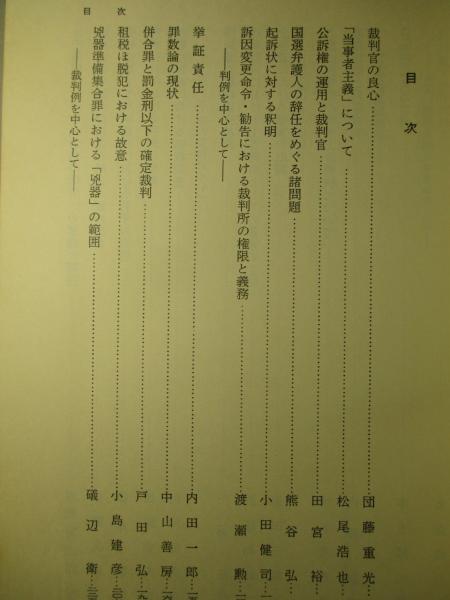 目次
目次
裁判官の良心……団藤重光…
「当事者主義」について……松尾浩也…
公訴権の運用と裁判官……田宮裕…
国選弁護人の辞任をめぐる諸問題……熊谷弘…
起訴状に対する釈明……小田健司…
訴因変更命令・勧告における裁判所の権限と義務……渡瀬勲…
――判例を中心として――
挙証責任……内田一郎…
罪数論の現状……中山善房…
併合罪と罰金刑以下の確定裁判……戸田弘…
租税ほ脱犯における故意……小島建彦…
兇器準備集合罪における「兇器」の範囲……礒辺衛…
――裁判例を中心として――